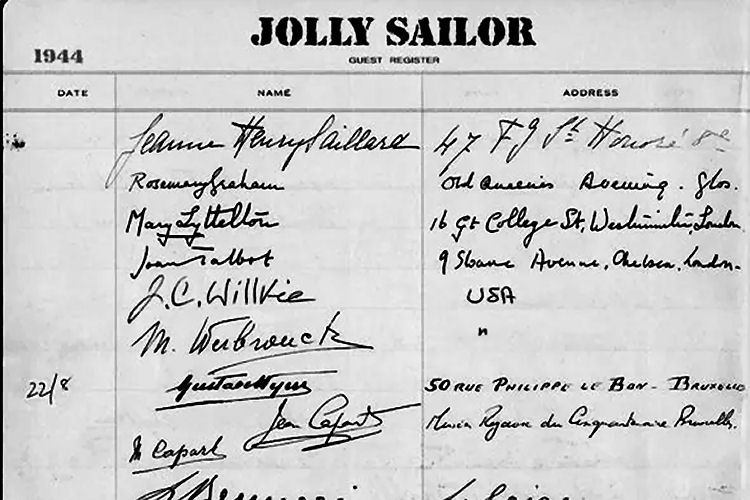 JOLLY SAILOR
1944
GUEST REGISTER
DATE NAME ADDRESS
Jeanne Henry Saillard 47 Fg St Honoré 8e
Rosemary Graham Old Avening. Glos.
Mary Lyttelton 16 Gt College St, Westminster, London
Joan Talbot 9 Sloane Avenue, Chelsea, London.
J. C. Willkie USA
M. Werbrouck "
22/8 50 RUE PHILIPPE LE BON - BRUXELLES
Jean Capart du Cinquantenaire Bruxelles.
M Capart